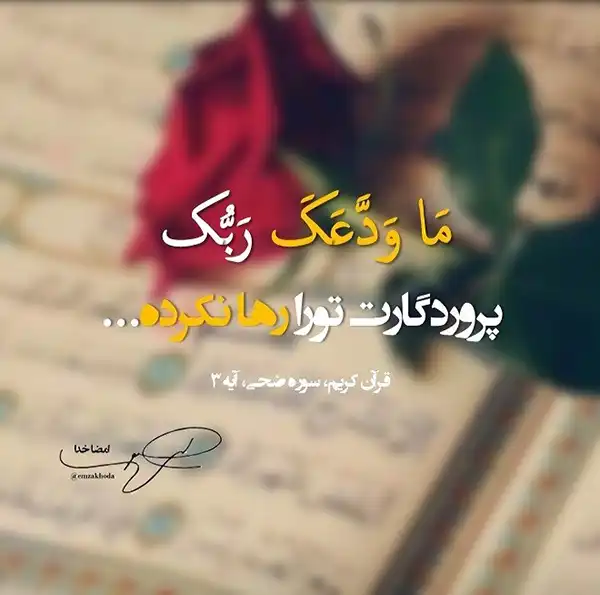 مَا وَدَّعَكَ رَبُّكَ
پروردگارت تو را رها نکرده...
قرآن کریم، سوره ضحی، آیه ۳
امضا خدا
@emzakhoda